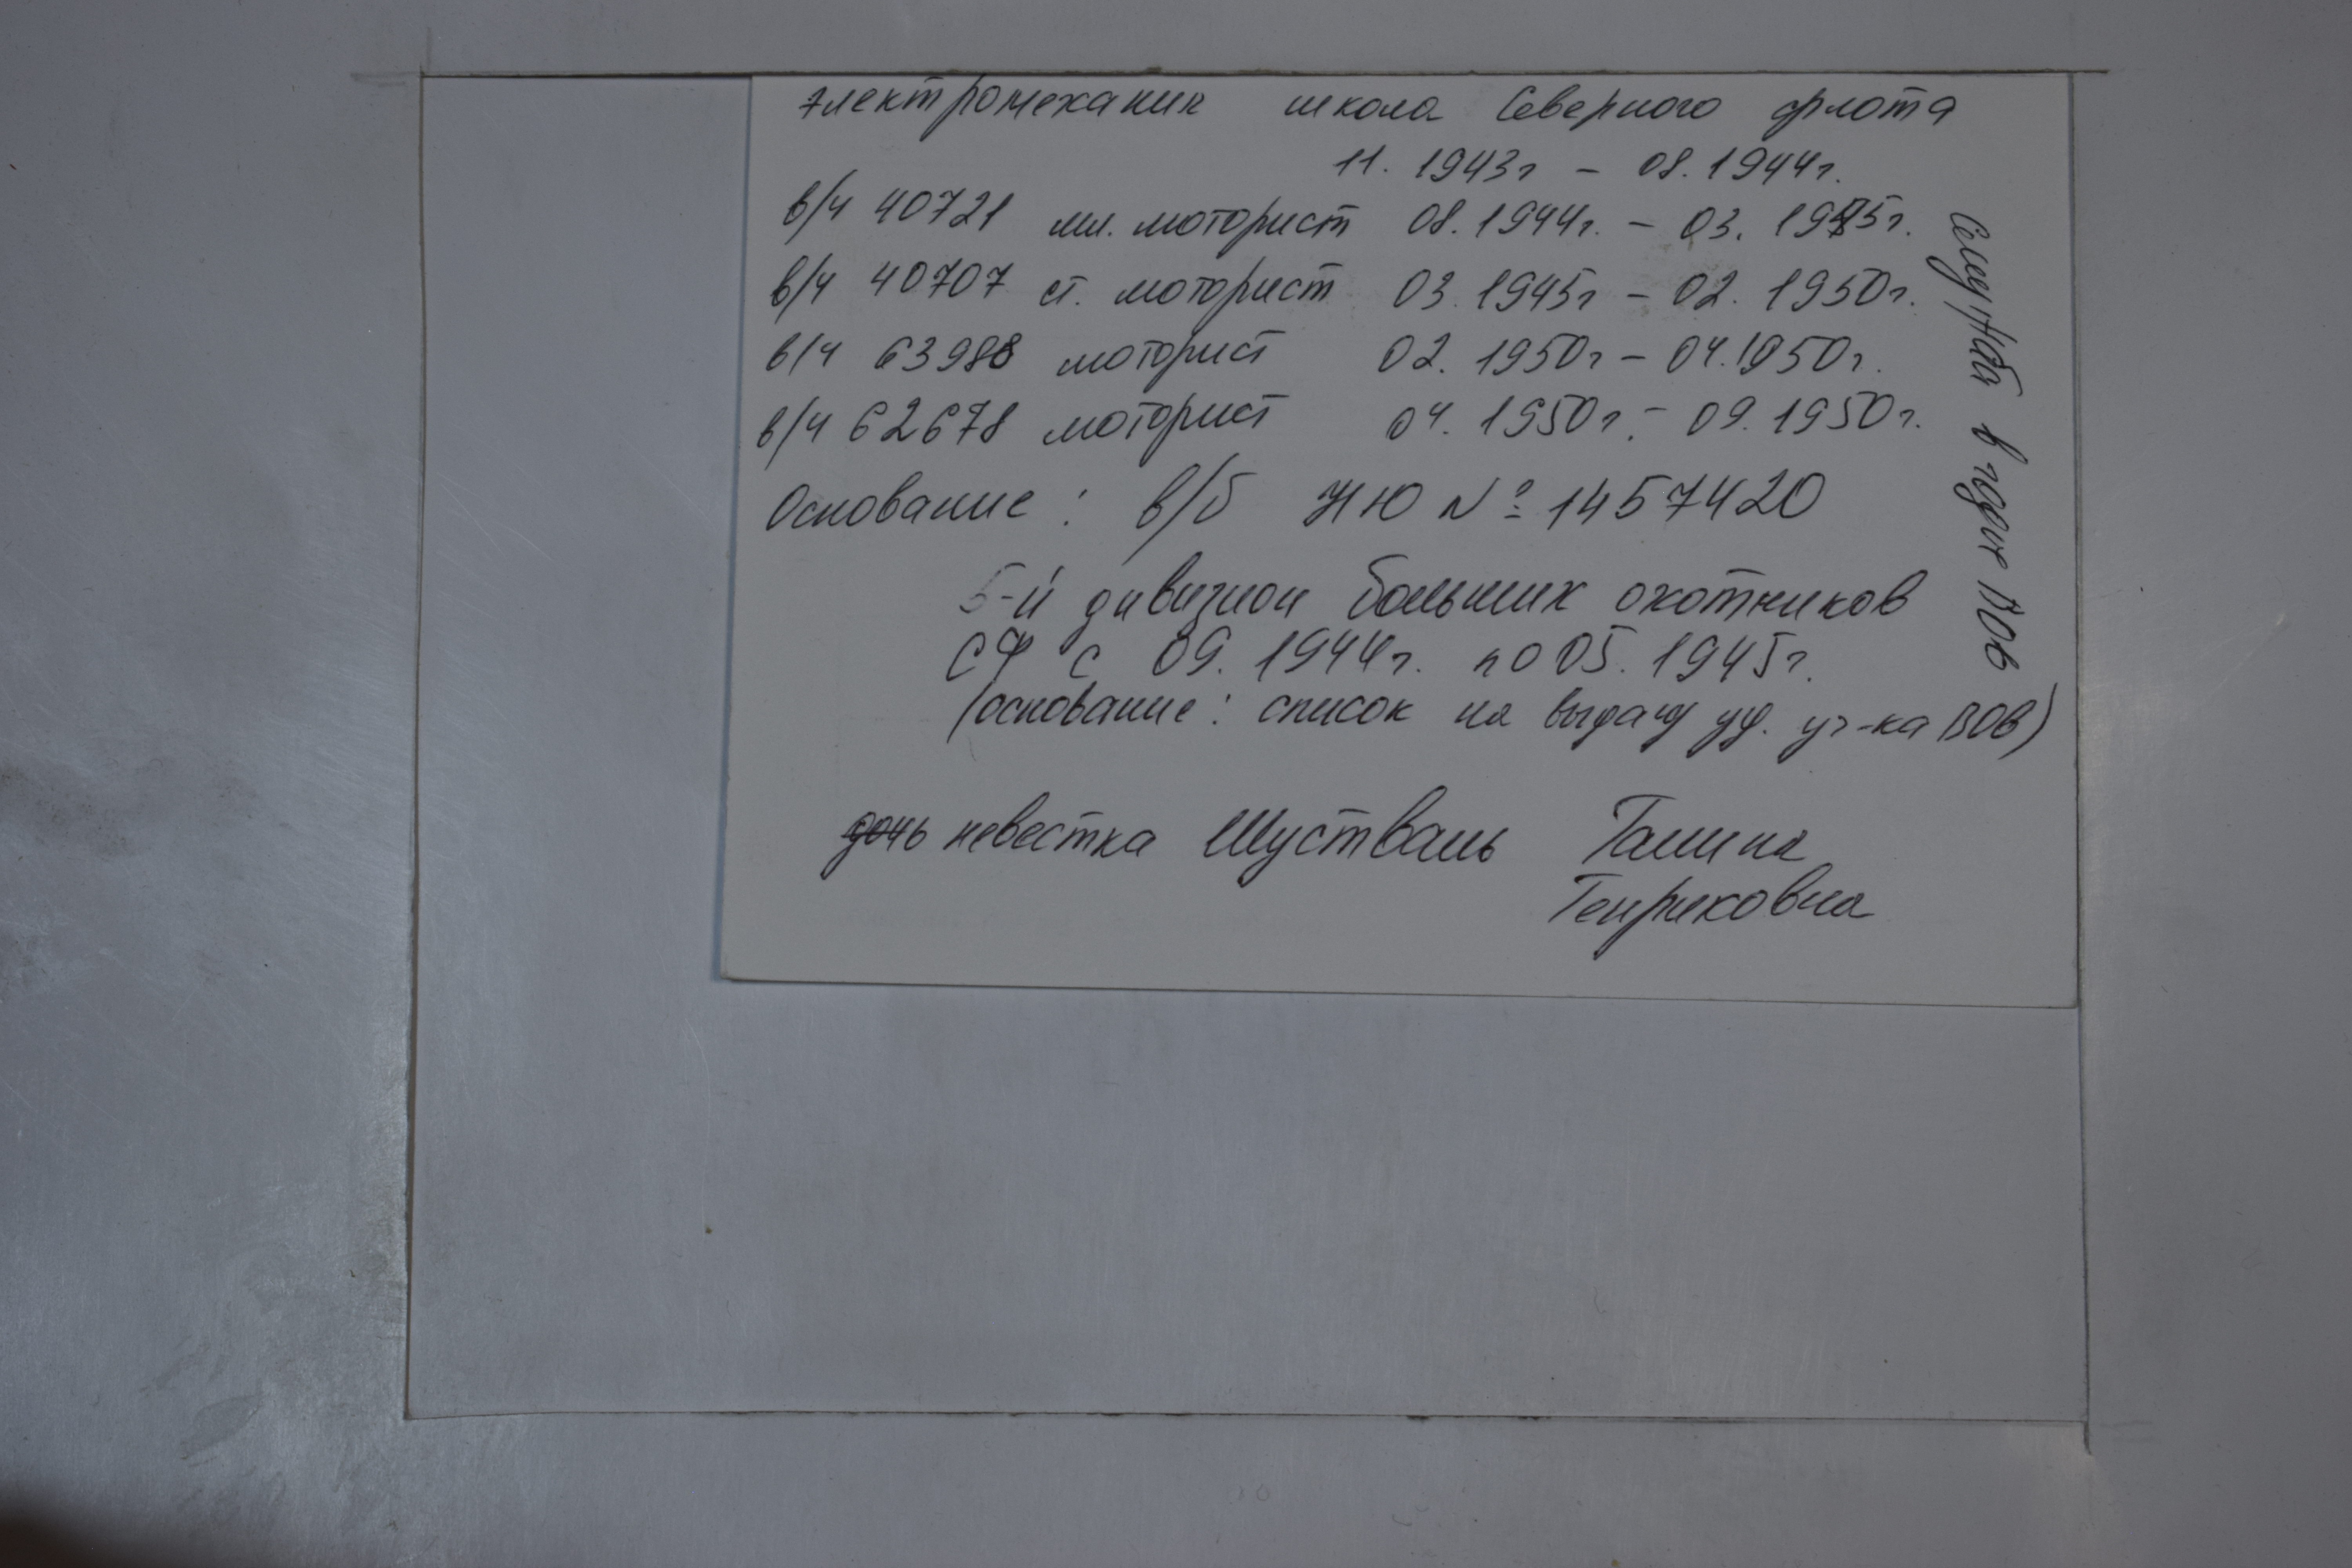 электромеханик школа Северного флота
11. 1943г – 08. 1944г.
в/ч 40721 мл. моторист 08. 1944г. – 03. 1945г.
в/ч 40707 ст. моторист 03. 1945г – 02. 1950г.
в/ч 63988 моторист 02. 1950г – 04. 1950г.
в/ч 62678 моторист 04. 1950г. – 09. 1950г.
Основание: в/б НЮ № 1457420
5-й дивизион больших охотников
СФ с 09. 1944г. по 05. 1945г.
(основание: список на выдачу уд. уч-ка ВОВ)
дочь невестка Шустваль Галина
Генриховна
Служба в годы ВОВ